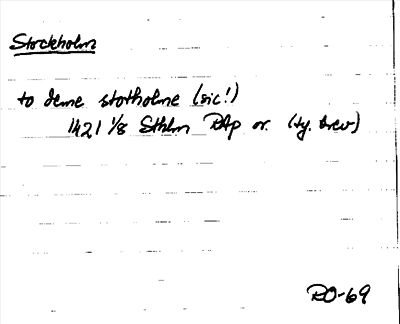 Stockholm
to deme stotholme (sic!)
1421 1/8 Sthlm RAp or. (ty. brev)
RO-69